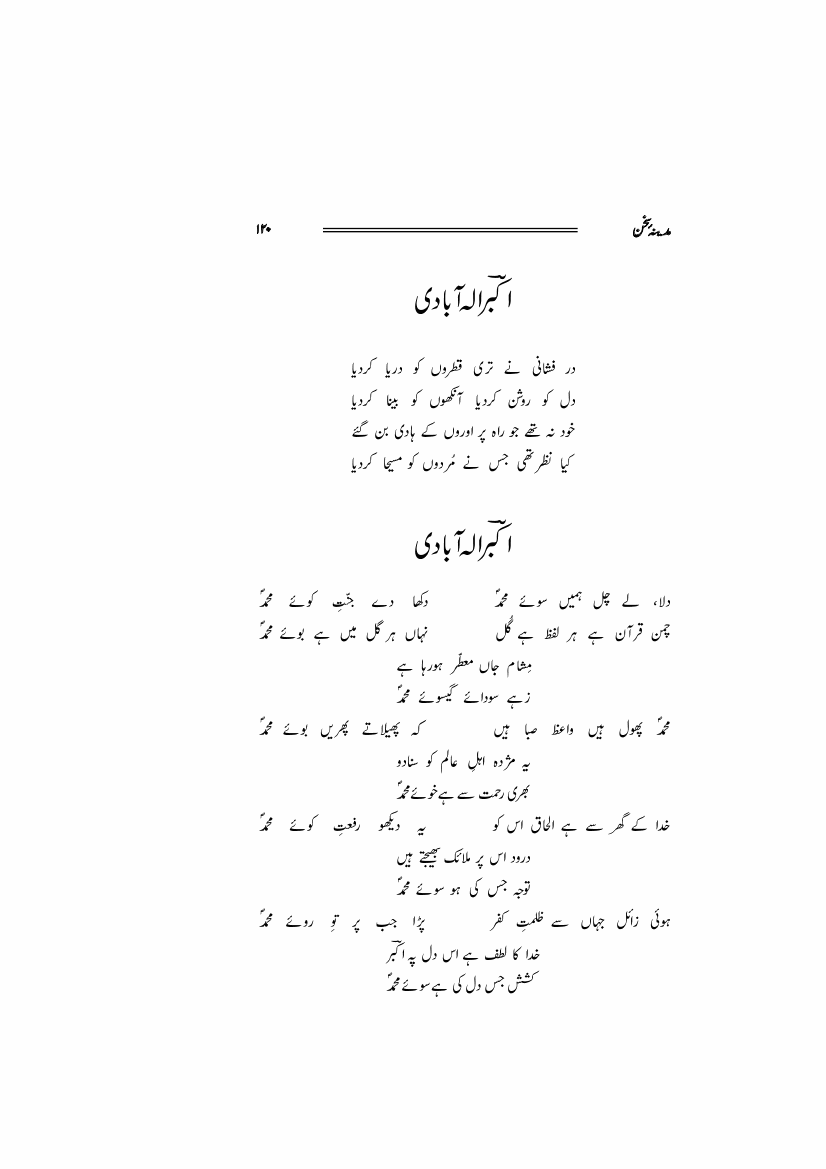 مدینہ سخن ۱۲۰
اکبرؔ الہ آبادی
در فشانی نے تری قطروں کو دریا کردیا
دل کو روشن کردیا آنکھوں کو بینا کردیا
خود نہ تھے جو راہ پر اوروں کے ہادی بن گئے
کیا نظر تھی جس نے مُردوں کو مسیحا کردیا
اکبرؔ الہ آبادی
دلا، لے چل ہمیں سوئے محمدؐ دکھا دے جنّتِ کوئے محمدؐ
چمن قرآن ہے ہر لفظ ہے گُل نہاں ہر گل میں ہے بوئے محمدؐ
مِشام جاں معطّر ہورہا ہے
زہے سودائے گیسوئے محمدؐ
محمدؐ پھول ہیں واعظ صبا ہیں کہ پھیلاتے پھریں بوئے محمدؐ
یہ مژدہ اہلِ عالم کو سنادو
بھری رحمت سے ہے خوئے محمدؐ
خدا کے گھر سے ہے الحاق اس کو یہ دیکھو رفعتِ کوئے محمدؐ
درود اس پر ملائک بھیجتے ہیں
توجہ جس کی ہو سوئے محمدؐ
ہوئی زائل جہاں سے ظلمتِ کفر پڑا جب پر توِ روئے محمدؐ
خدا کا لطف ہے اس دل پہ اکبرؔ
کشش جس دل کی ہے سوئے محمدؐ